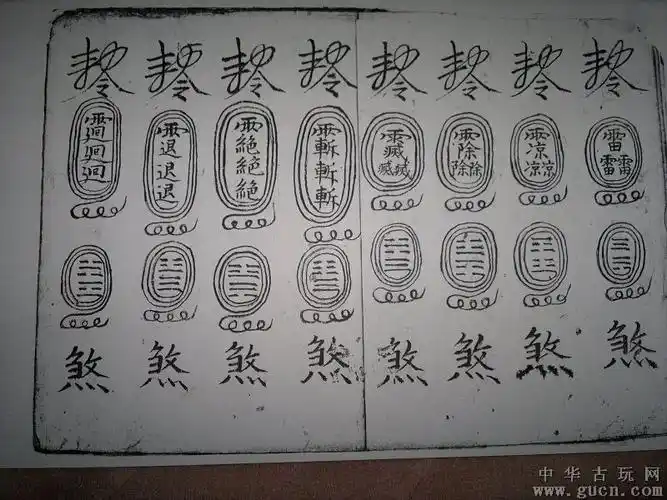 敕令 雷雷雷 煞
敕令 雨凉凉凉 煞
敕令 雨除除除 煞
敕令 雨 煞
敕令 雨斬斬斬 煞
敕令 雨絶絶絶 煞
敕令 雨退退退 煞
敕令 雨迴迴迴 煞
中华古玩网
www.gucn.com